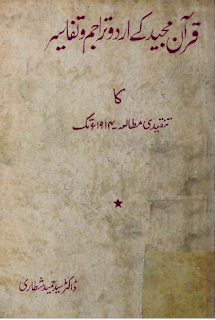 قرآن مجید کے اردو تراجم و تفاسیر
کا
تنقیدی مطالعہ ۔ ۱۹۱۴ء تک
ڈاکٹر سید حمید شطاری